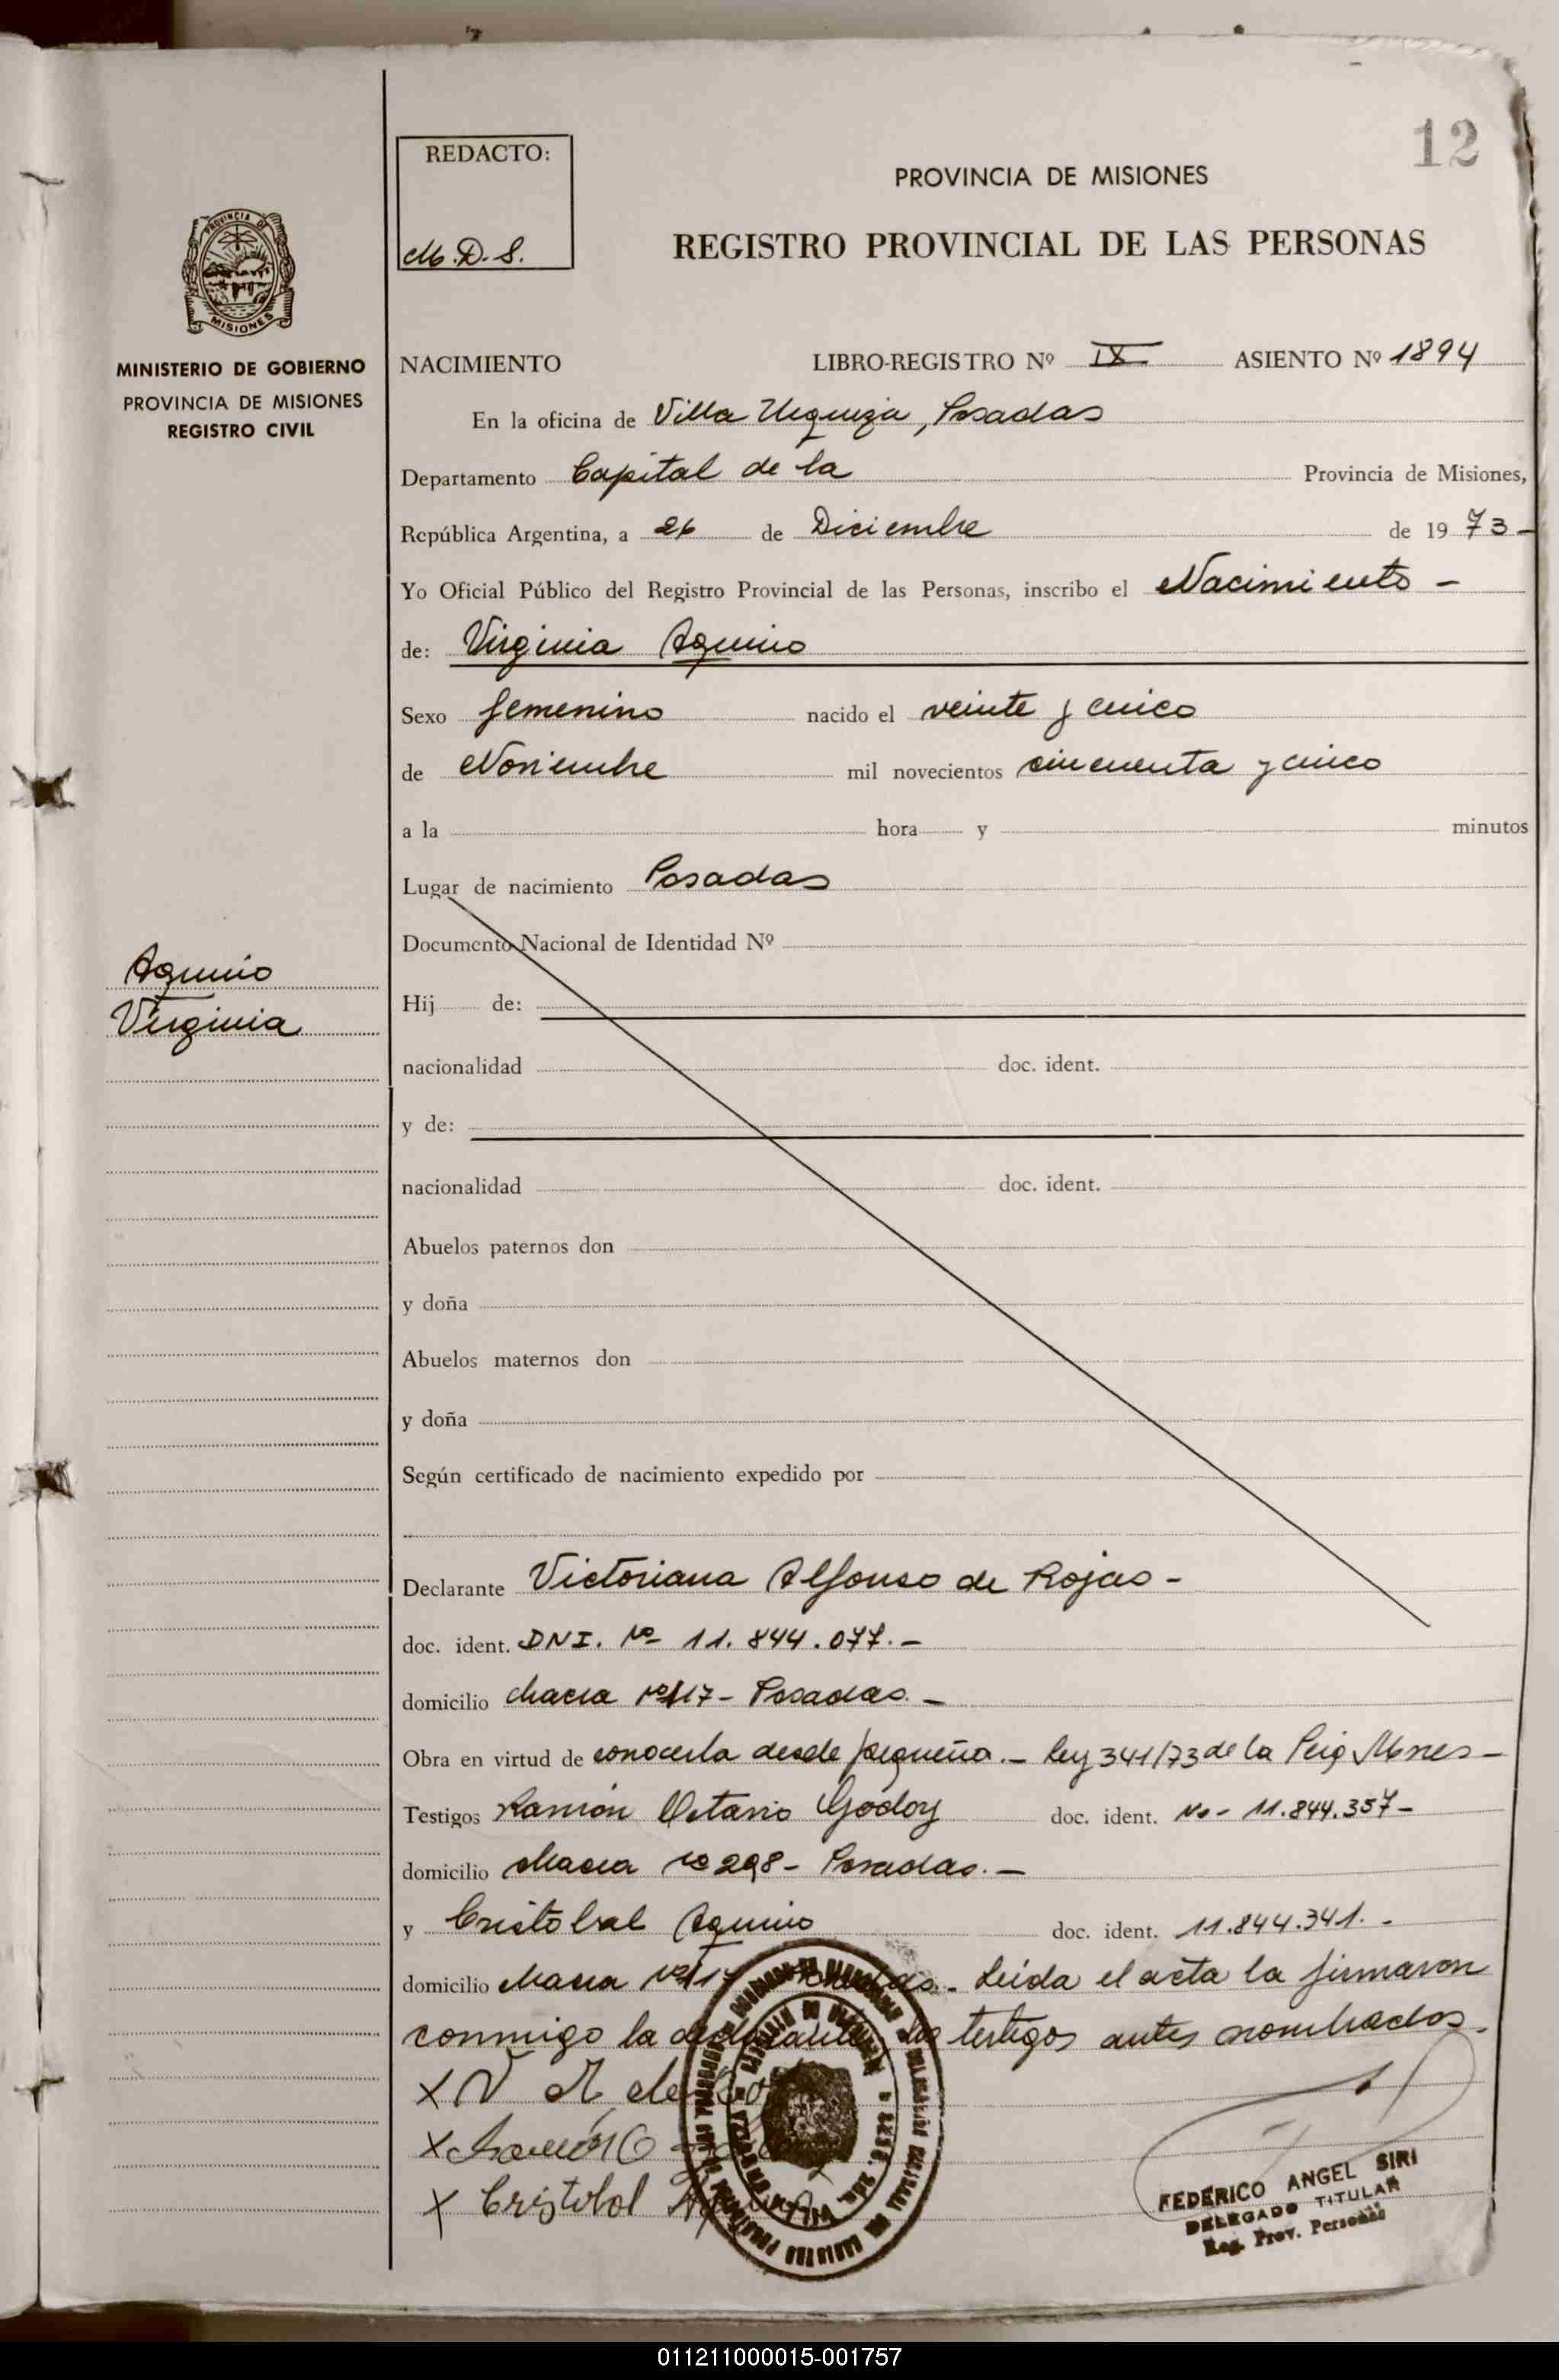 12
REDACTO:
M.D.S.
PROVINCIA DE MISIONES
REGISTRO PROVINCIAL DE LAS PERSONAS
PROVINCIA DE
MISIONES
MINISTERIO DE GOBIERNO
PROVINCIA DE MISIONES
REGISTRO CIVIL
NACIMIENTO LIBRO-REGISTRO Nº IX ASIENTO Nº 1894
En la oficina de Villa Urquiza, Posadas
Departamento Capital de la Provincia de Misiones,
República Argentina, a 26 de Diciembre de 1973-
Yo Oficial Público del Registro Provincial de las Personas, inscribo el Nacimiento -
de: Virginia Aquino
Sexo femenino nacido el veinte y cinco
de Noviembre mil novecientos cincuenta y cinco
a la hora y minutos
Lugar de nacimiento Posadas
Documento Nacional de Identidad Nº
Aquino
Virginia
Hij de:
nacionalidad doc. ident.
y de:
nacionalidad doc. ident.
Abuelos paternos don
y doña
Abuelos maternos don
y doña
Según certificado de nacimiento expedido por
Declarante Victoriana Alfonso de Rojas -
doc. ident. DNI. Nº 11.844.077.-
domicilio chacra Nº 117- Posadas.-
Obra en virtud de conocerla desde pequeña.- Ley 341/73 de la Mnes-
Testigos Ramón Octavio Godoy doc. ident. No- 11.844.357-
domicilio chacra Nº 298- Posadas.-
y Cristobal Aquino doc. ident. 11.844.341.-
domicilio chacra Nº 117 Posadas.- Leida el acta la firmaron
conmigo la declarante los testigos antes nombrados.
x V A de
x Ramón O
x Cristobol Aquino
FEDERICO ANGEL SIRI
DELEGADO TITULAR
Reg. Prov. Personas
011211000015-001757